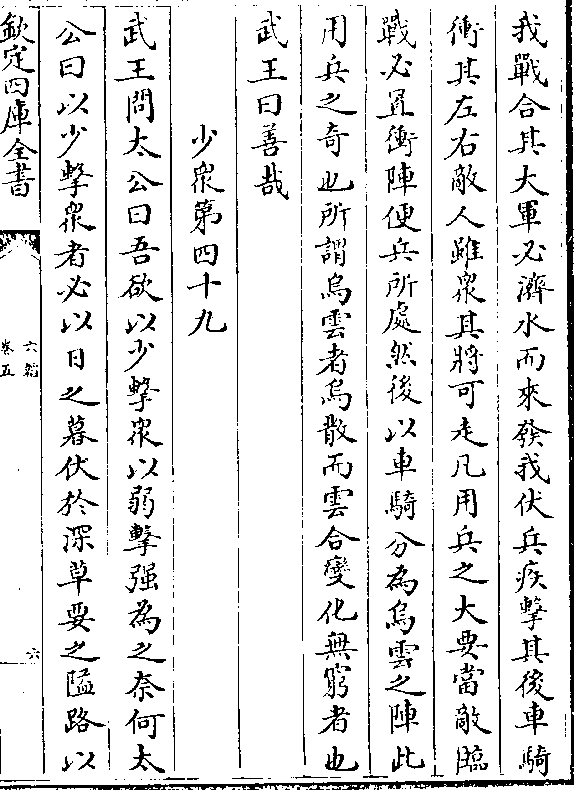 我戰合其大軍必濟水而來發我伏兵疾擊其後車騎
衝其左右敵人雖衆其將可走凡用兵之大要當敵臨
戰必置衝陣便兵所處然後以車騎分為烏雲之陣此
用兵之奇也所謂烏雲者烏散而雲合變化無窮者也
武王曰善哉
少衆第四十九
武王問太公曰吾欲以少擊衆以弱擊强為之奈何太
公曰以少擊衆者必以日之暮伏於深草要之隘路以
欽定四庫全書
六韜
卷五
六